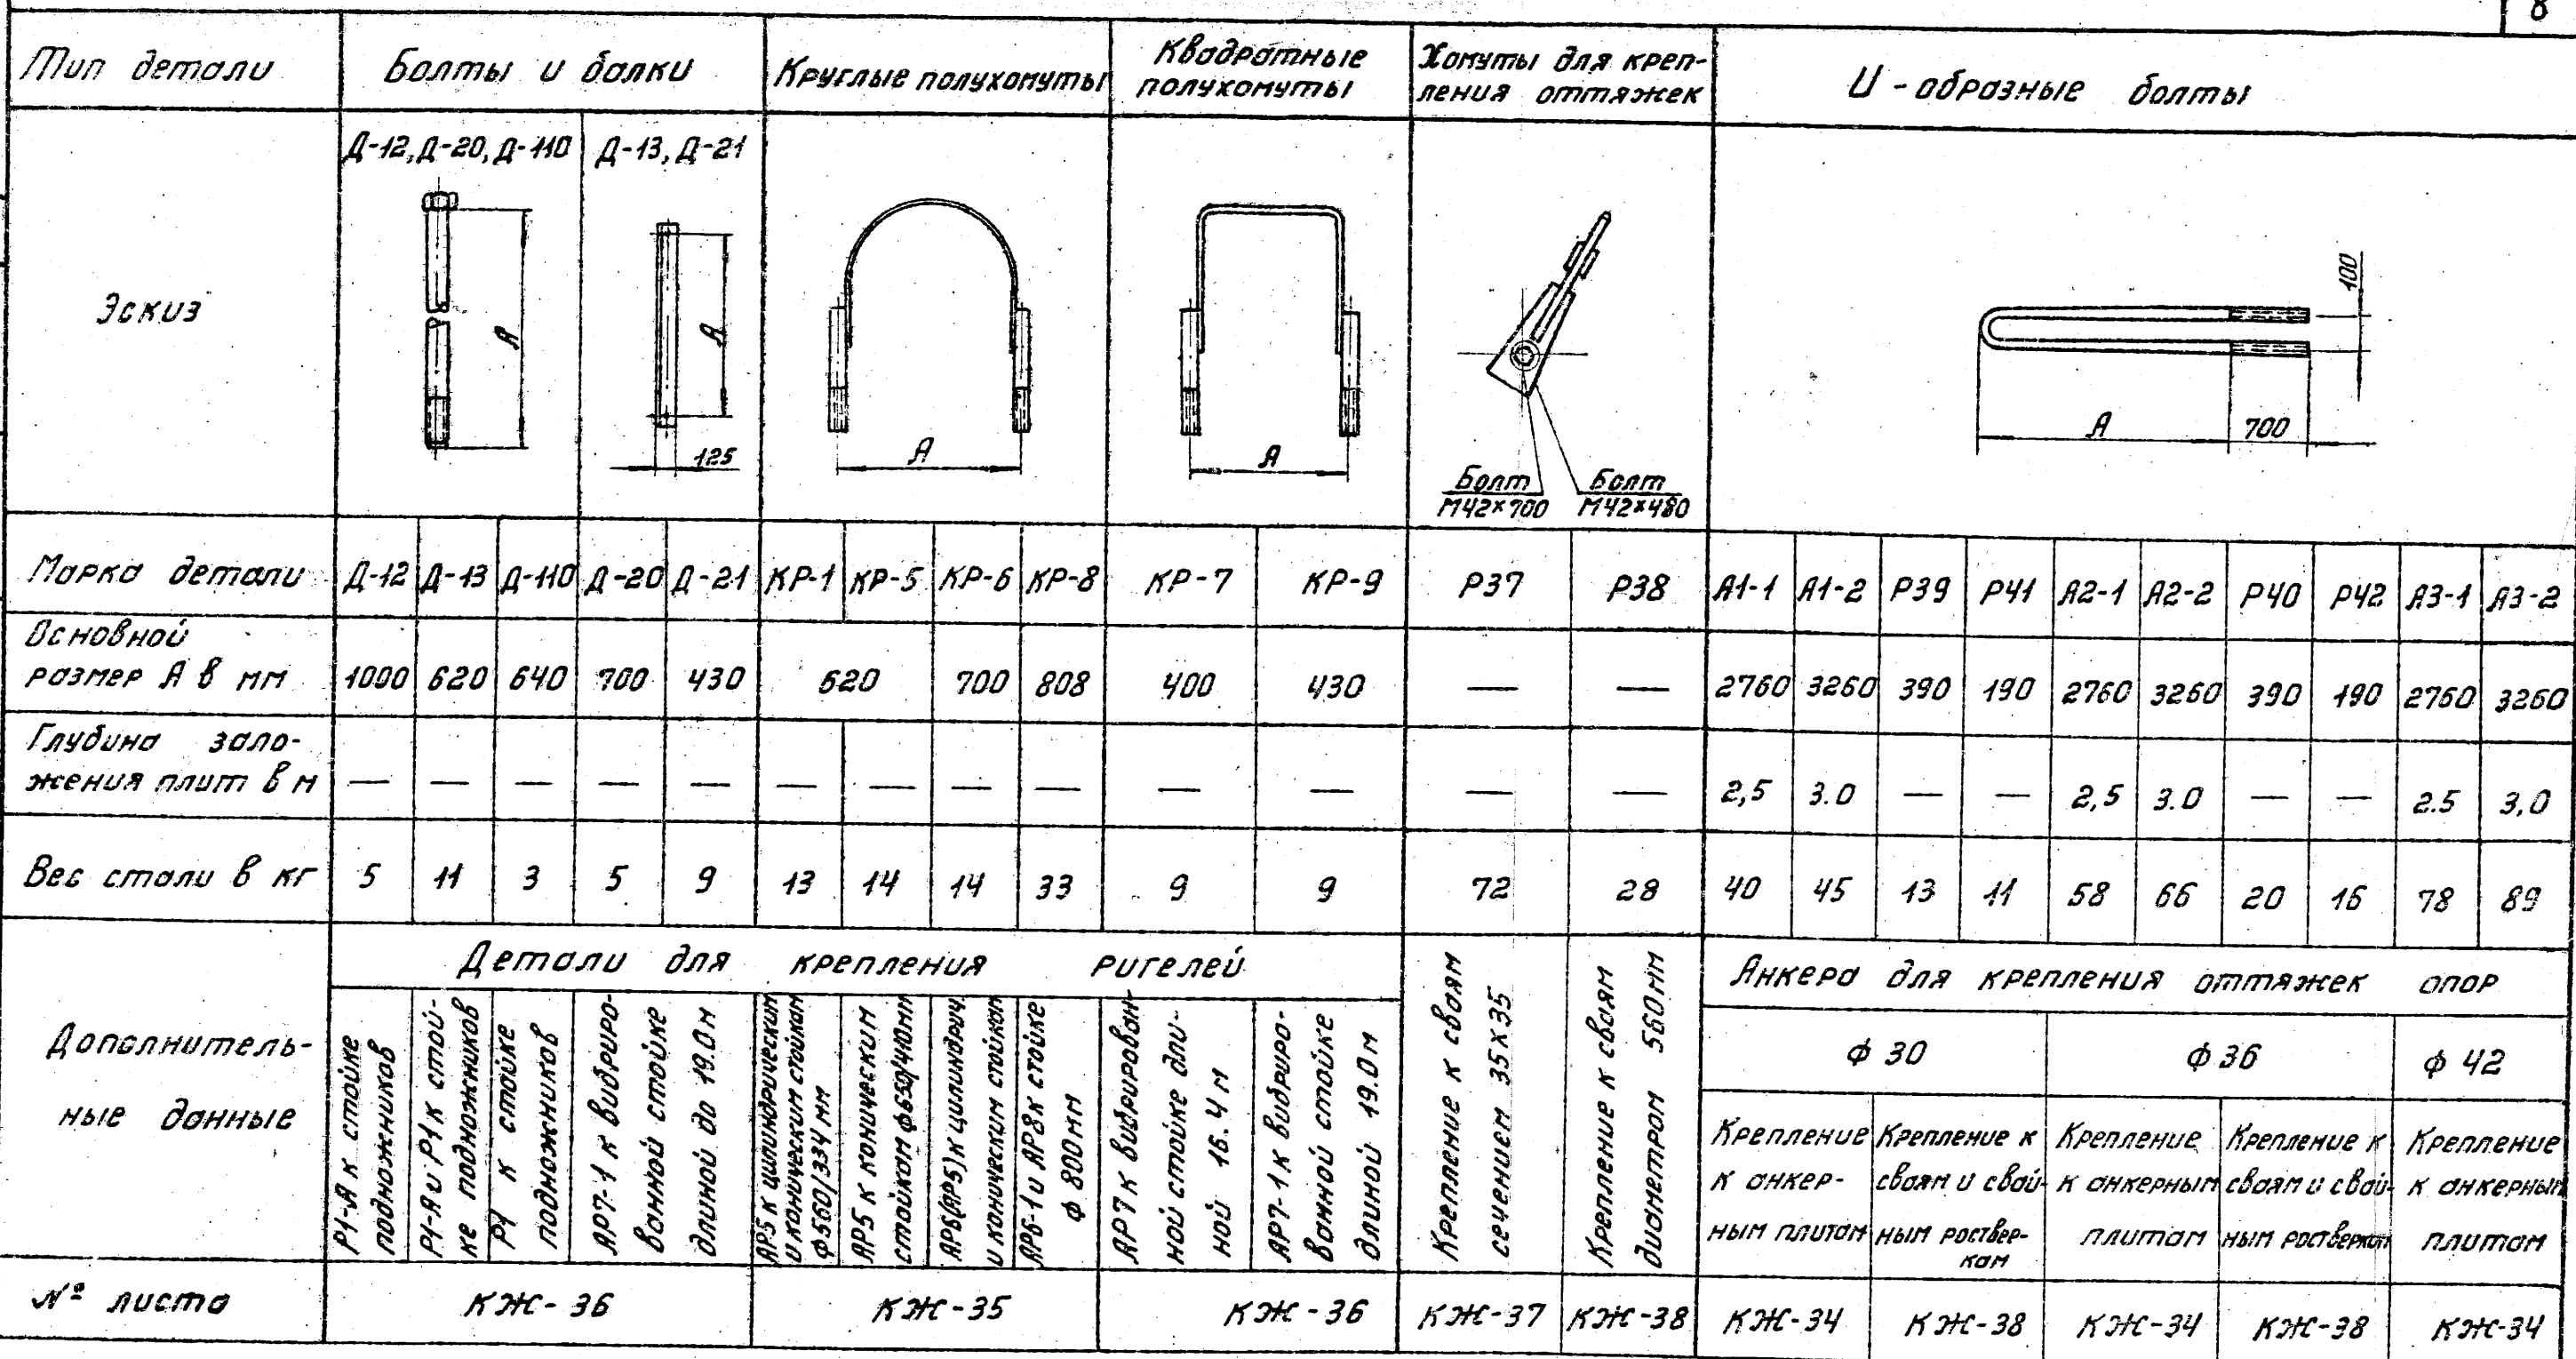 8
Тип детали
Болты и балки
Круглые полухомуты
Квадратные
полухомуты
Хомуты для креп-
ления оттяжек
U-образные болты
Эскиз
Д-12, Д-20, Д-110
Д-13, Д-21
А
А
125
А
А
Болт
М42×700
Болт
М42×480
А
700
100
Марка детали Д-12 Д-13 Д-110 Д-20 Д-21 КР-1 КР-5 КР-6 КР-8 КР-7 КР-9 Р37 Р38 А1-1 А1-2 Р39 Р41 А2-1 А2-2 Р40 Р42 А3-1 А3-2
Основной
размер А в мм 1000 620 640 700 430 620 700 808 400 430 — — 2760 3260 390 190 2760 3260 390 190 2760 3260
Глубина зало-
жения плит в м — — — — — — — — — — — — — 2,5 3.0 — — 2,5 3.0 — — 2.5 3,0
Вес стали в кг 5 11 3 5 9 13 14 14 33 9 9 72 28 40 45 13 11 58 66 20 16 78 89
Дополнитель-
ные данные
Детали для крепления ригелей
Р1-А к стойке
подножников
Р1-А и Р1 к стой-
ке подножников
Р1 к стойке
подножников
АР7-1 к вибриро-
ванной стойке
длиной до 19.0м
АР5 к цилиндрическим
и коническим стойкам
ф560/334 мм
АР5 к коническим
стойкам ф650/410мм
АР6(АР5) к цилиндрич.
и коническим стойкам
АР6-1 и АР8 к стойке
ф 800мм
АР7 к вибрирован-
ной стойке дли-
ной 16.4м
АР7-1 к вибриро-
ванной стойке
длиной 19.0м
Крепление к сваям
сечением 35×35
Крепление к сваям
диаметром 560мм
Анкера для крепления оттяжек опор
ф 30
ф 36
ф 42
Крепление
к анкер-
ным плитам
Крепление к
сваям и свай-
ным роствер-
кам
Крепление
к анкерным
плитам
Крепление к
сваям и свай-
ным ростверкам
Крепление
к анкерным
плитам
№ листа КЖ-36 КЖ-35 КЖ-36 КЖ-37 КЖ-38 КЖ-34 КЖ-38 КЖ-34 КЖ-38 КЖ-34